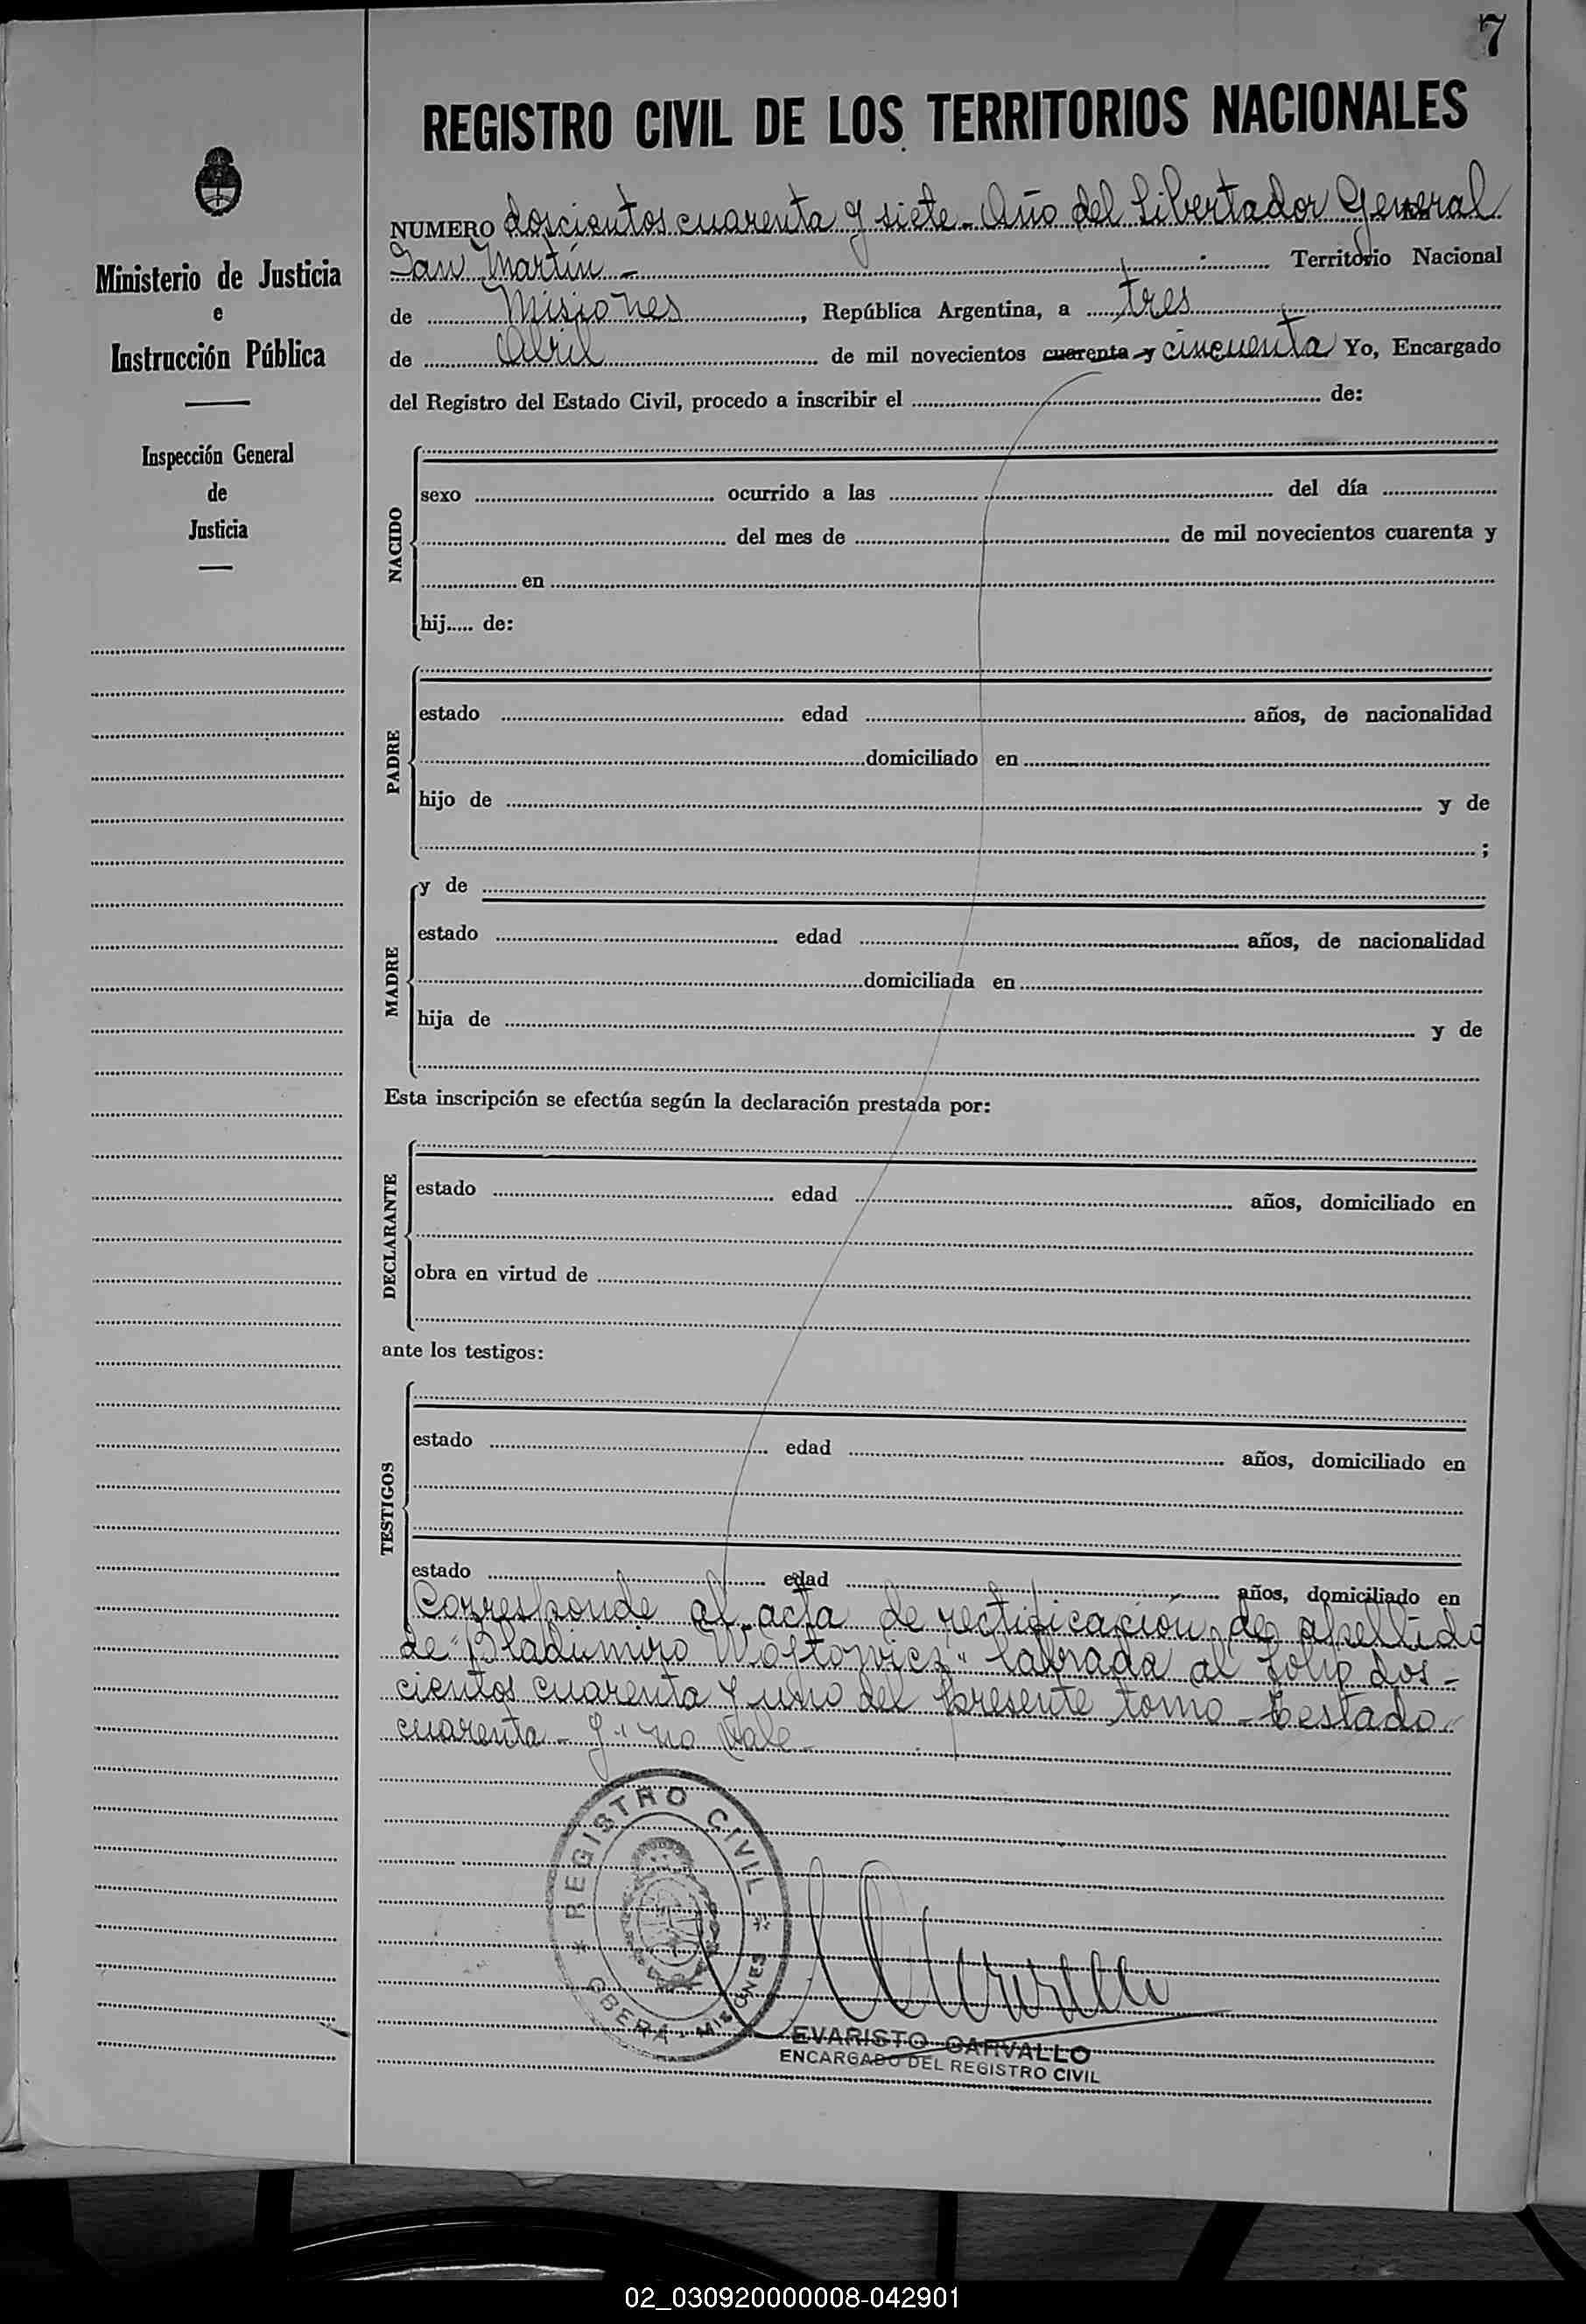 7
REGISTRO CIVIL DE LOS TERRITORIOS NACIONALES
Ministerio de Justicia
e
Instrucción Pública
Inspección General
de
Justicia
NUMERO doscientos cuarenta y siete - Año del Libertador General
San Martín - Territorio Nacional
de Misiones, República Argentina, a tres
de Abril de mil novecientos cuarenta y cincuenta Yo, Encargado
del Registro del Estado Civil, procedo a inscribir el de:
NACIDO
sexo ocurrido a las del día
del mes de de mil novecientos cuarenta y
en
hij..... de:
PADRE
estado edad años, de nacionalidad
domiciliado en
hijo de y de
;
MADRE
y de
estado edad años, de nacionalidad
domiciliada en
hija de y de
Esta inscripción se efectúa según la declaración prestada por:
DECLARANTE
estado edad años, domiciliado en
obra en virtud de
ante los testigos:
TESTIGOS
estado edad años, domiciliado en
estado edad años, domiciliado en
Corresponde al acta de rectificación de apellido
de "Bladimiro labrada al folio dos-
cientos cuarenta y uno del presente tomo - Testado
cuarenta - y" no Vale -
REGISTRO CIVIL
OBERA - MISIONES
EVARISTO CARVALLO
ENCARGADO DEL REGISTRO CIVIL
02_030920000008-042901